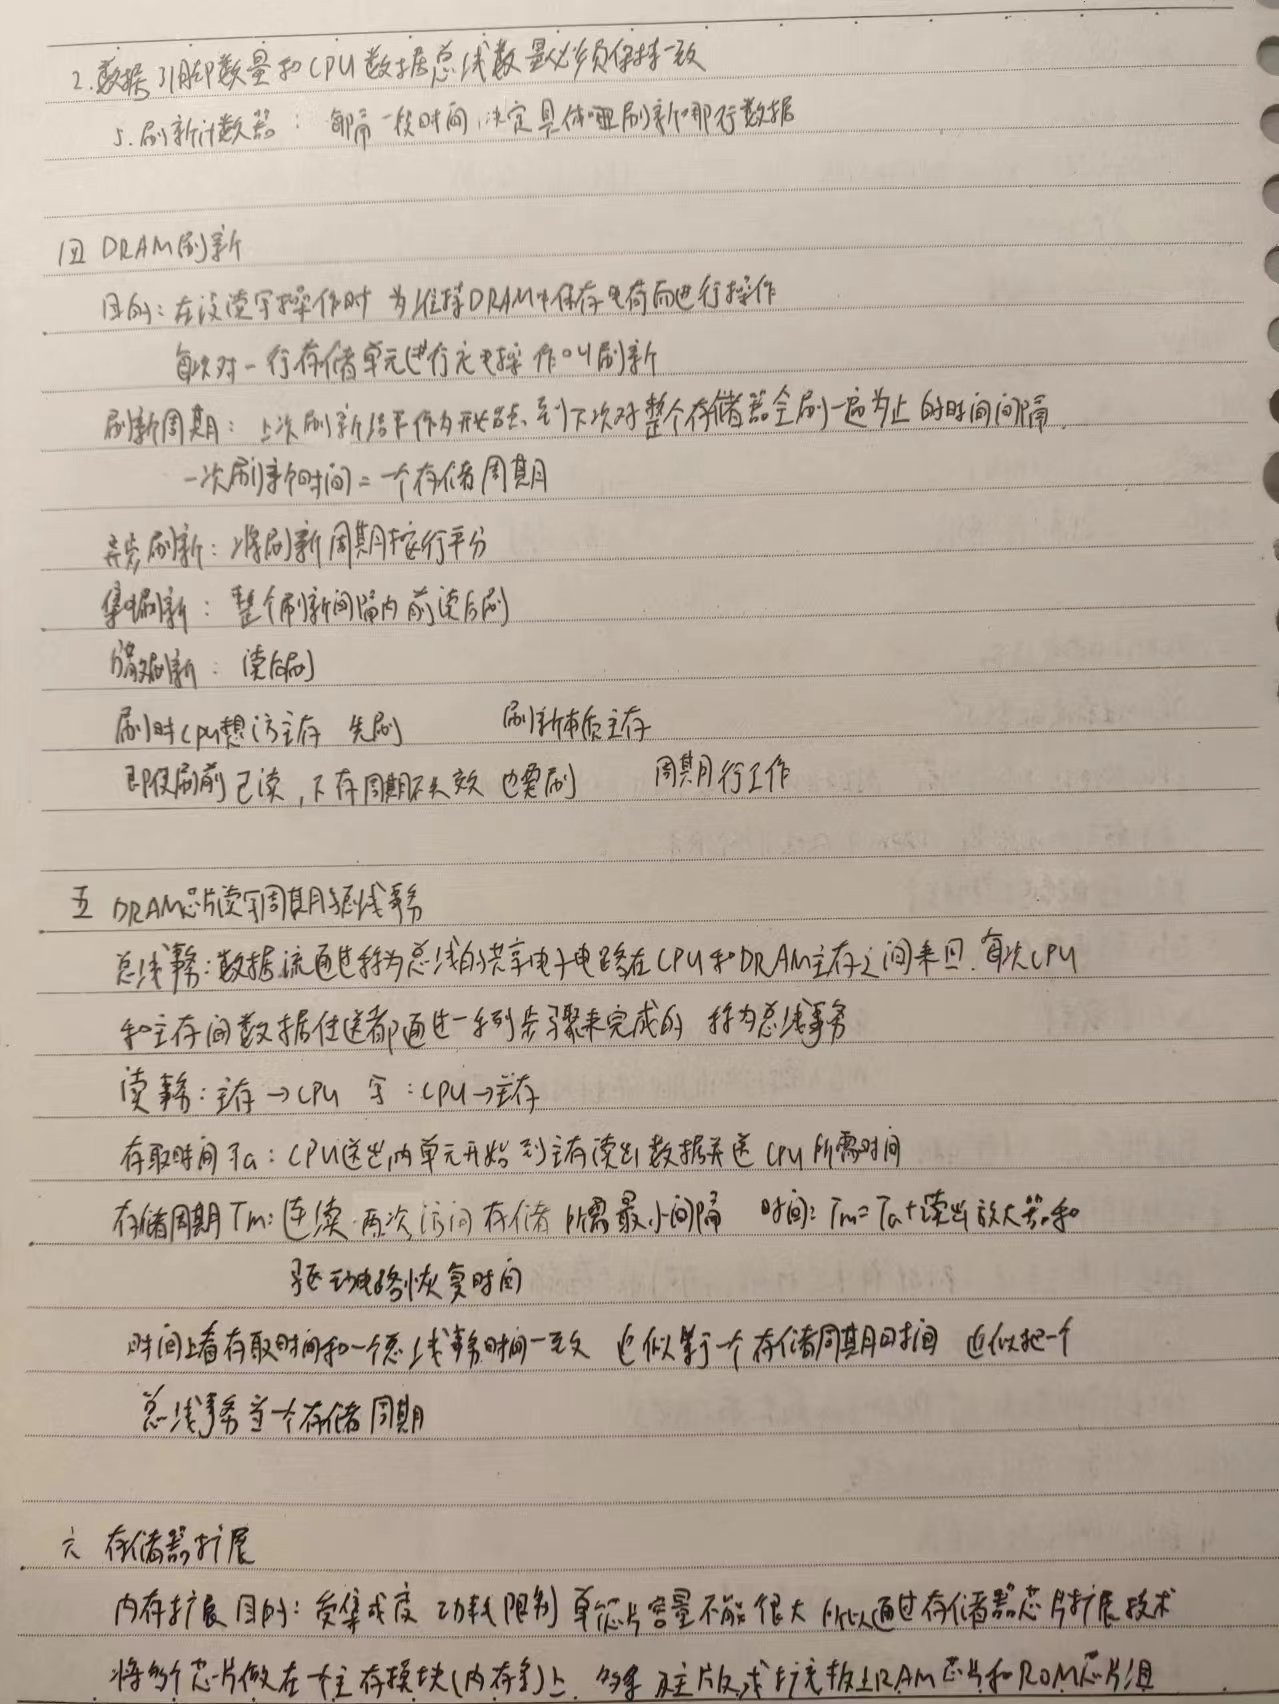 2.数据引脚数量和CPU数据总线数量必须保持一致
5.刷新计数器：每隔一段时间,决定具体哪刷新哪行数据
四 DRAM刷新
目的：在没读写操作时 为维持DRAM中保存电荷而进行操作
每次对一行存储单元进行充电操作叫刷新
刷新周期：上次刷新结束作为开始点、到下次对整个存储器全刷一遍为止的时间间隔.
一次刷新时间=一个存储周期
异步刷新：将刷新周期按行平分
集中刷新：整个刷新间隔内前读后刷
分散刷新：读后刷
刷时CPU想访主存 先刷 刷新本质主存
即使刷前已读,下存周期不失效 也要刷 周期行工作
五 DRAM芯片读写周期总线事务
总线事务：数据流通过称为总线的共享电子电路在CPU和DRAM主存之间来回.每次CPU
和主存间数据传送都通过一系列步骤来完成的 称为总线事务
读事务：主存→CPU 写：CPU→主存
存取时间Ta：CPU送出内单元开始到主存读出数据并送CPU所需时间
存储周期Tm：连续两次访问存储所需最小间隔 时间：Tm=Ta+读出放大器和
驱动电路恢复时间
时间上看存取时间和一个总线事务时间一致 近似等于一个存储周期时间 近似把一个
总线事务当一个存储周期
六 存储器扩展
内存扩展目的：受集成度 功耗限制 单芯片容量不能很大 所以通过存储器芯片扩展技术
将多个芯片做在一主存模块(内存条)上. 多条 及主板或扩充板上RAM芯片和ROM芯片组